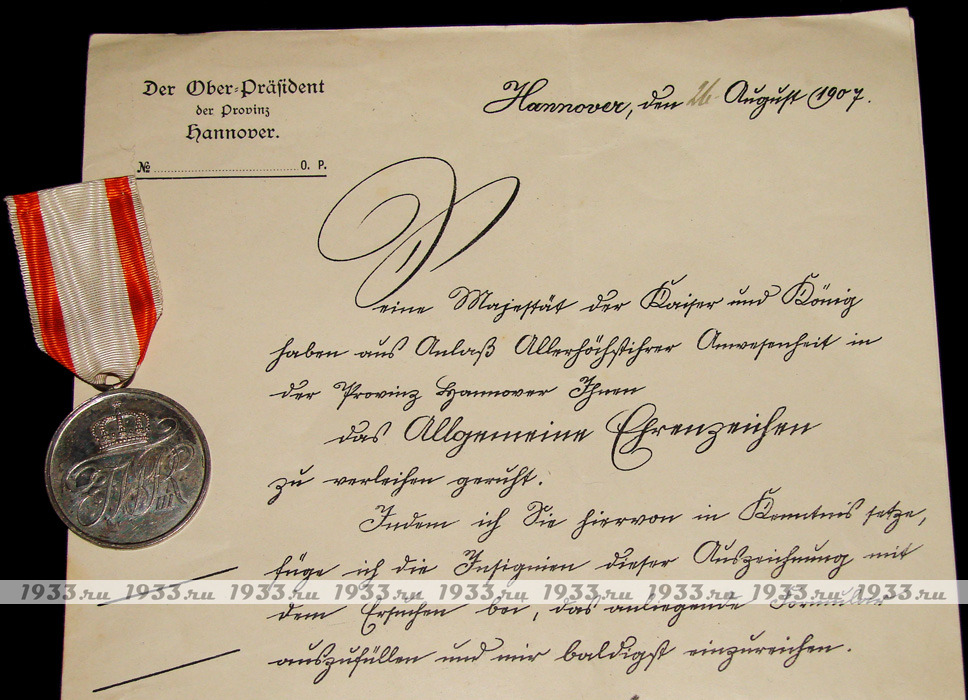 Der Ober-Präsident
der Provinz
Hannover.
№ ........................ O. P.
Hannover, den 26. August 1907.
Seine Majestät der Kaiser und König
haben aus Anlaß Allerhöchstihrer Anwesenheit in
der Provinz Hannover Ihnen
das Allgemeine Ehrenzeichen
zu verleihen geruht.
Indem ich Sie hiervon in Kenntnis setze,
füge ich die Insignien dieser Auszeichnung mit
dem Ersuchen bei, das anliegende Formular
auszufüllen und mir baldigst einzureichen.
FWR
III
1933.ru 1933.ru 1933.ru 1933.ru 1933.ru 1933.ru 1933.ru 1933.ru 1933.ru